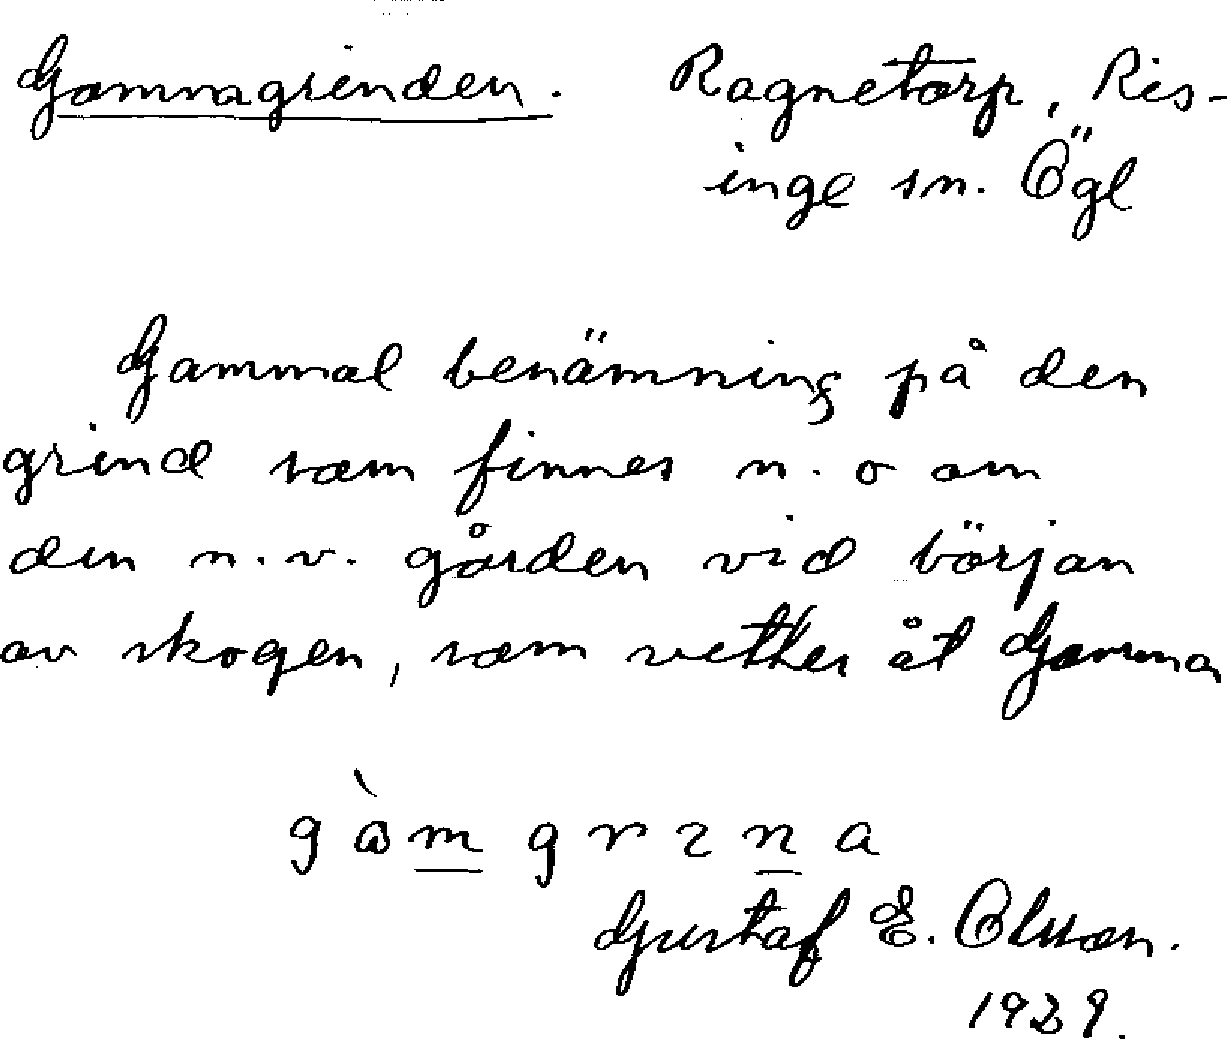 Gamnagrinden. Ragnetorp, Ris-
inge sn. Ögl
Gammal benämning på den
grind som finnes n. o om
den n.v. gården vid början
av skogen, som vetter åt Gamna
gàm grɩna
Gustaf E. Olsson.
1929.